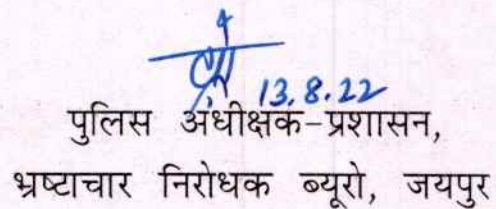 13.8.22
पुलिस अधीक्षक-प्रशासन,
भ्रष्टाचार निरोधक ब्यूरो, जयपुर